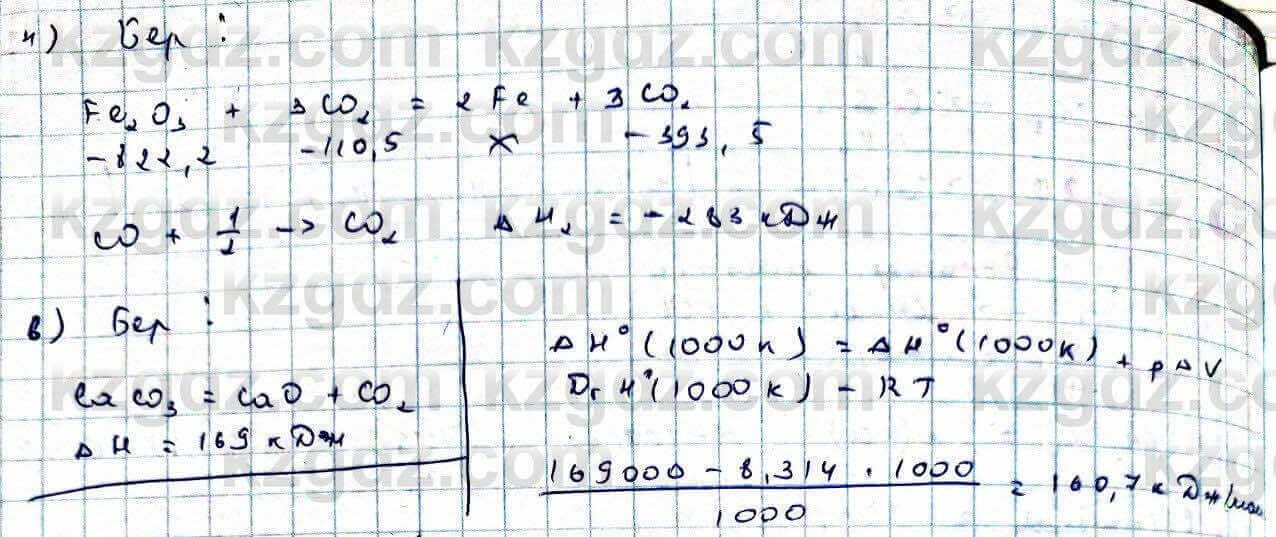 4) Бер:
Fe₂O₃ + 3CO₂ = 2Fe + 3CO₂
-822,2 -110,5 x -393,5
CO + 1/2 -> CO₂ ΔH₂ = -283 кДж
6) Бер:
CaCO₃ = CaO + CO₂
ΔH = 169 кДж
ΔH°(1000K) = ΔH°(1000K) + pΔV
DrH°(1000K) - RT
169000 - 8,314 · 1000
1000
= 160,7 кДж/мол
kzgdz.com